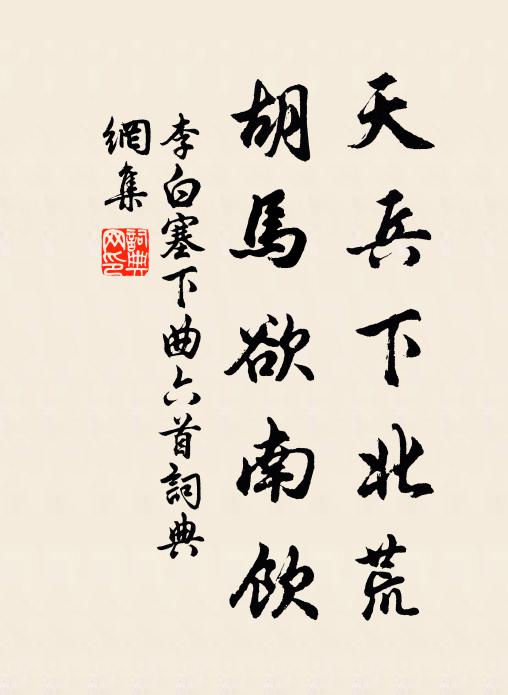 天兵下北荒
胡馬欲南飲
李白塞下曲六首詞典
網集
詞典
网印